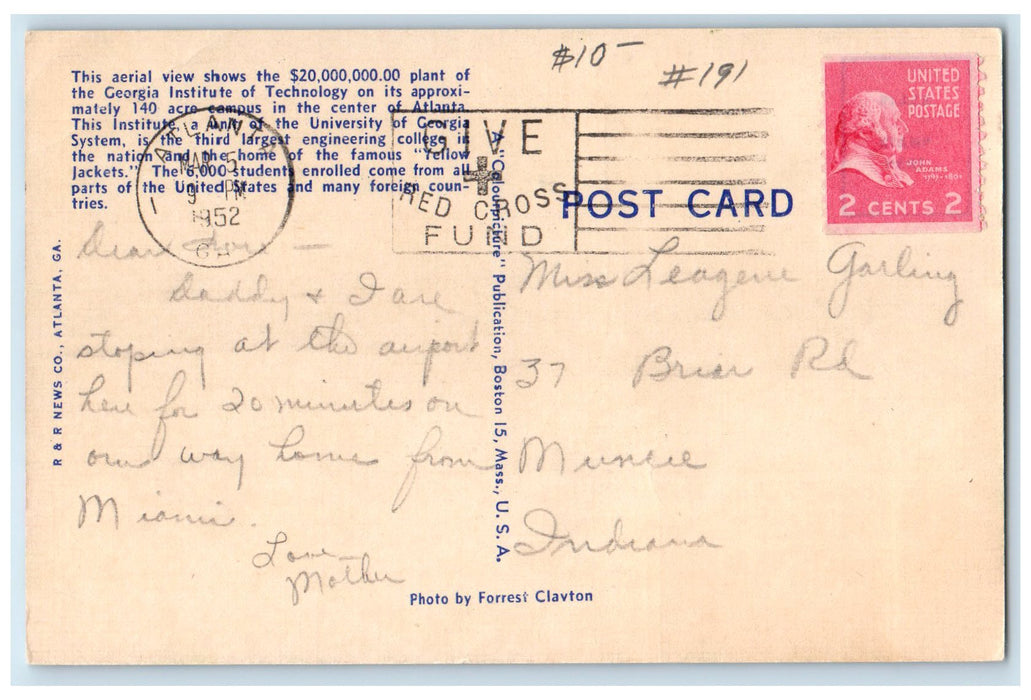 $10-
#191
This aerial view shows the $20,000,000.00 plant of
the Georgia Institute of Technology on its approxi-
mately 140 acre campus in the center of Atlanta.
This Institute, a unit of the University of Georgia
System, is the third largest engineering college in
the nation and the home of the famous "Yellow
Jackets." The 6,000 students enrolled come from all
parts of the United States and many foreign coun-
tries.
ATLANTA
MAR 5
9 PM
1952
GA
GIVE
RED CROSS
FUND
POST CARD
UNITED
STATES
POSTAGE
JOHN
ADAMS
1797-1801
2 CENTS 2
R & R NEWS CO., ATLANTA, GA.
A "Colourpicture" Publication, Boston 15, Mass., U. S. A.
Dear
Daddy & I are
stoping at the airport
here for 20 minutes on
our way home from
Miami.
Love
Mother
Miss Leagene Garling
37 Briar Rd
Muncie
Indiana
Photo by Forrest Clayton